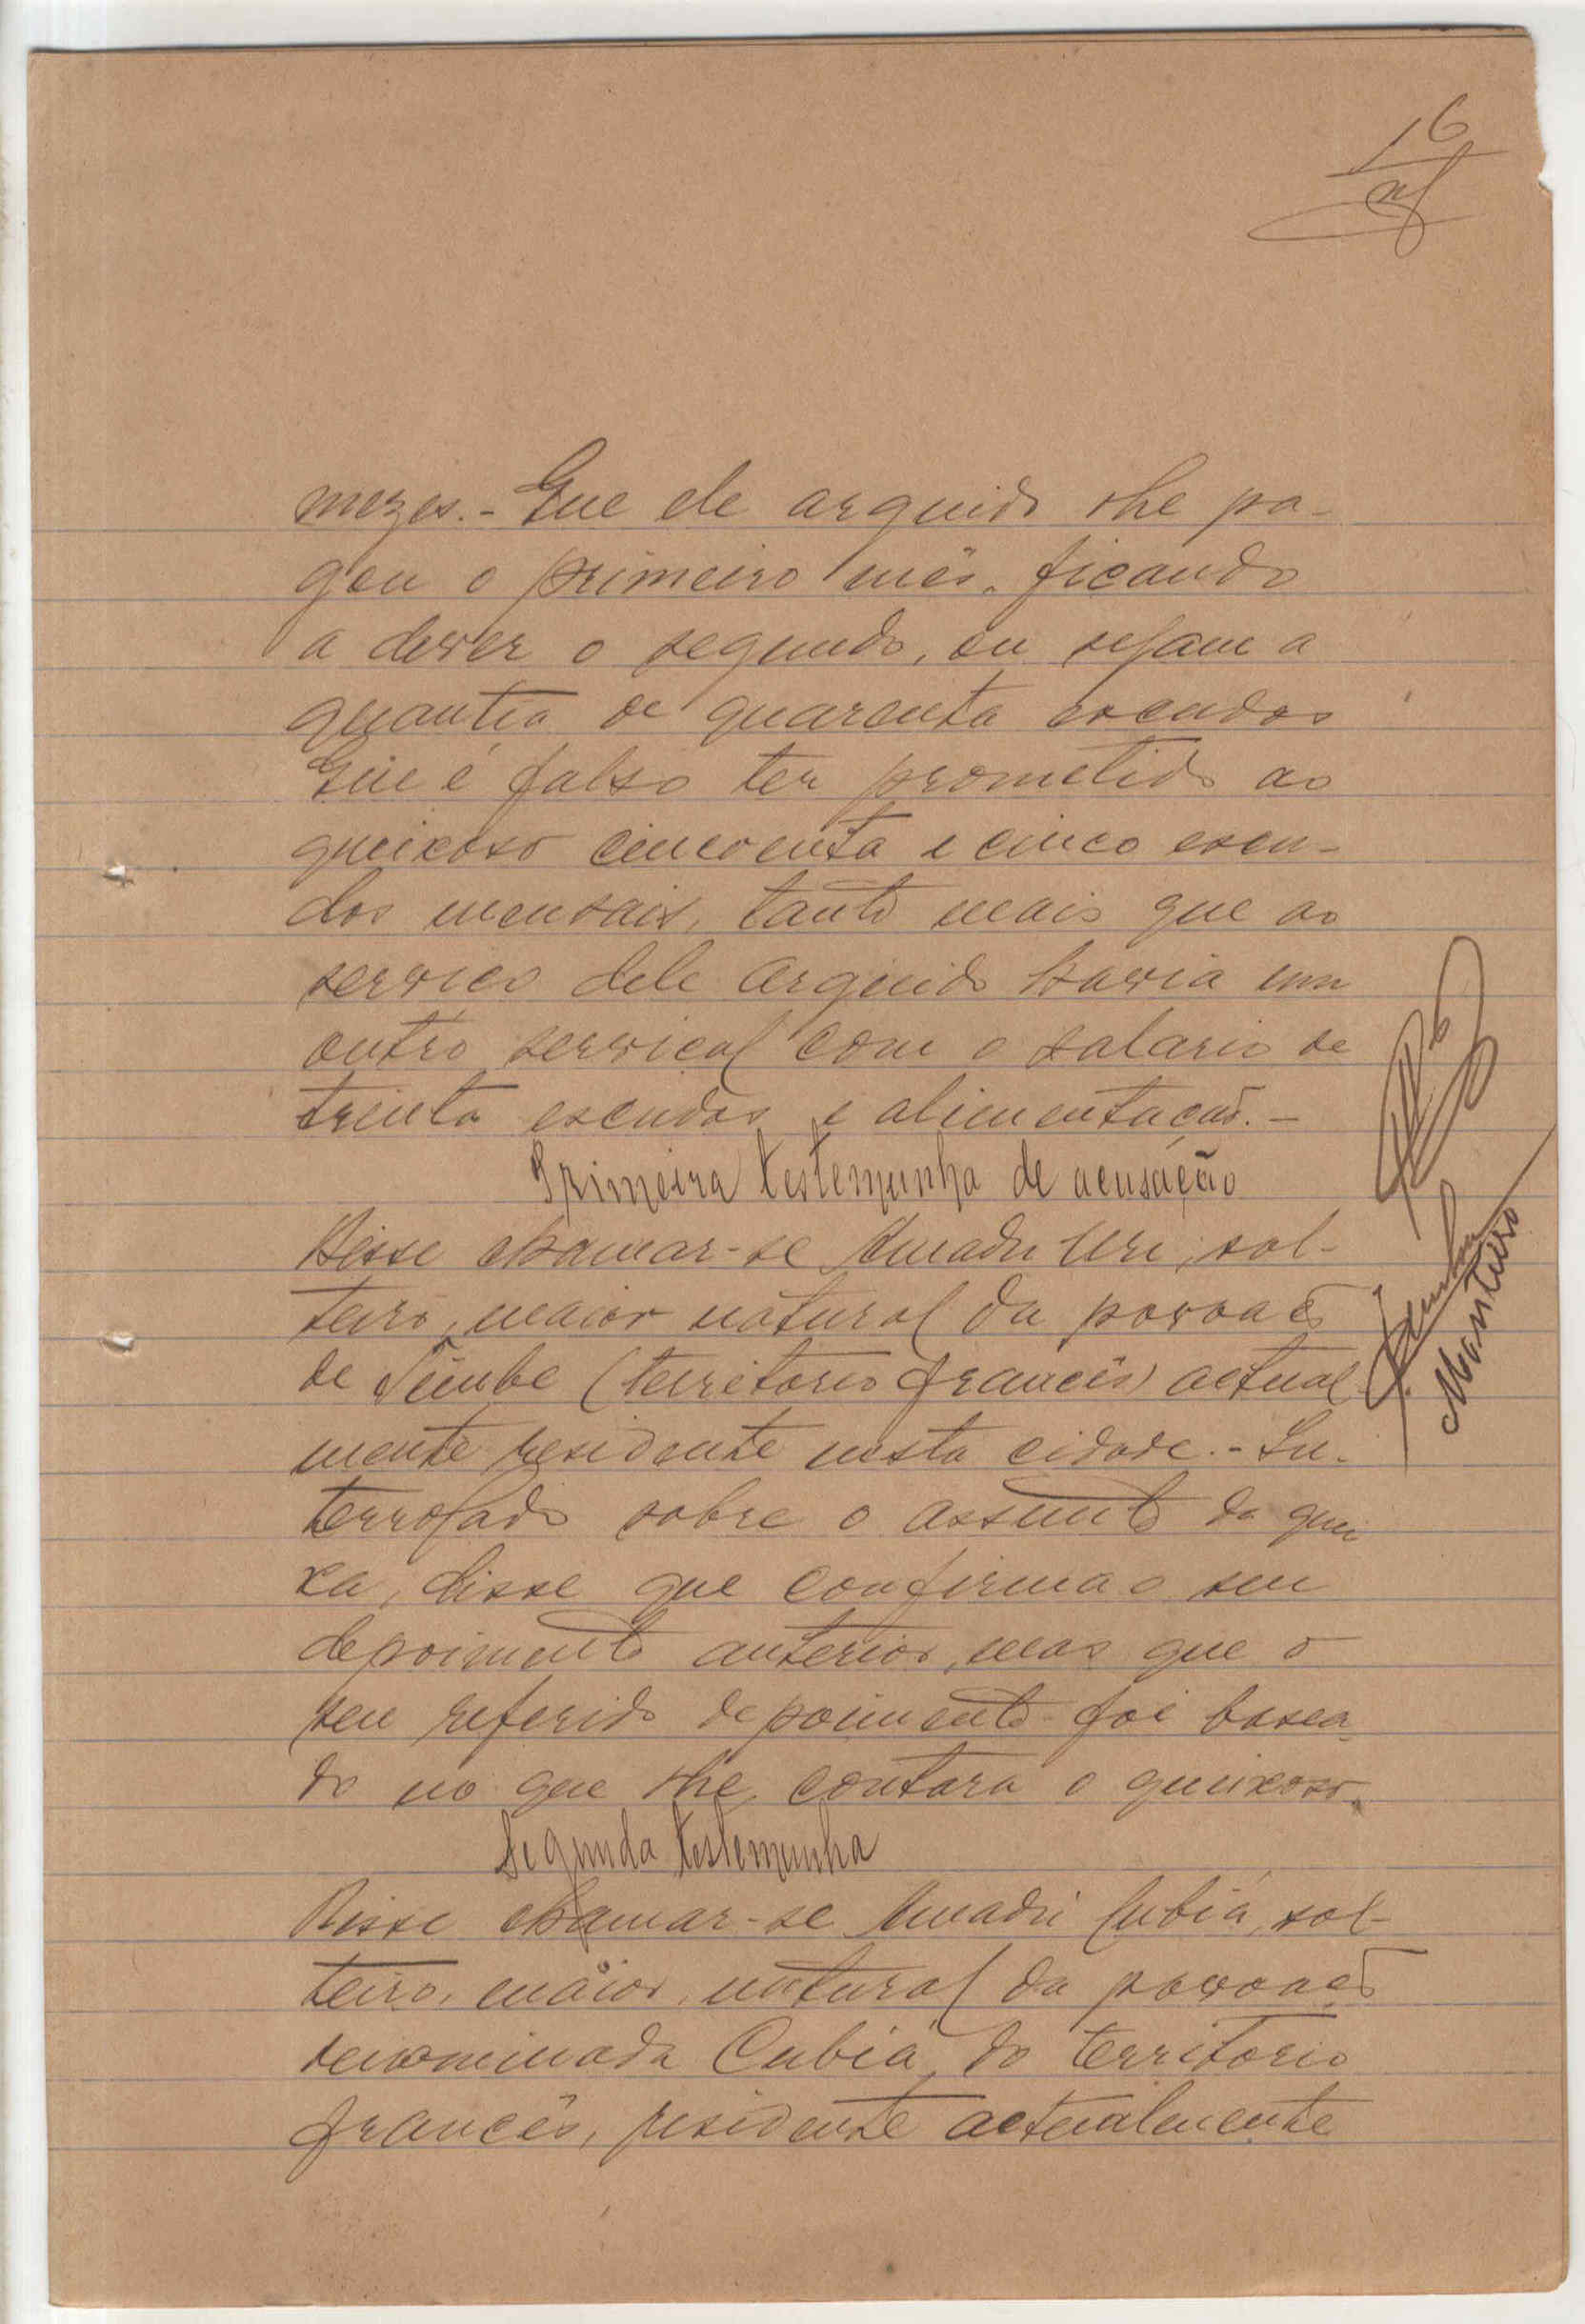 16
mezes. - Que ele arguido lhe pa-
gou o primeiro mês, ficando
a dever o segundo, ou sejam a
quantia de quarenta escudos
Que é falso ter prometido ao
queixoso cincoenta e cinco escu-
dos mensais, tanto mais que ao
serviço dele arguido havia um
outro serviçal com o salario de
trinta escudos e alimentação. -
Primeira testemunha de acusação
Disse chamar-se Amadu Uri, sol-
teiro, maior natural da povoação
de (territorio francês) actual-
mente residente nesta cidade. - In-
terrogado sobre o assunto da quei
xa, disse que confirma o seu
depoimento anterior, mas que o
seu referido depoimento foi basea
do no que lhe contara o queixoso.
Segunda testemunha
Disse chamar-se Amadú Cubiá, sol-
teiro, maior, natural da povoação
denominada Cubiá, do territorio
francês, residente actualmente
Monteiro